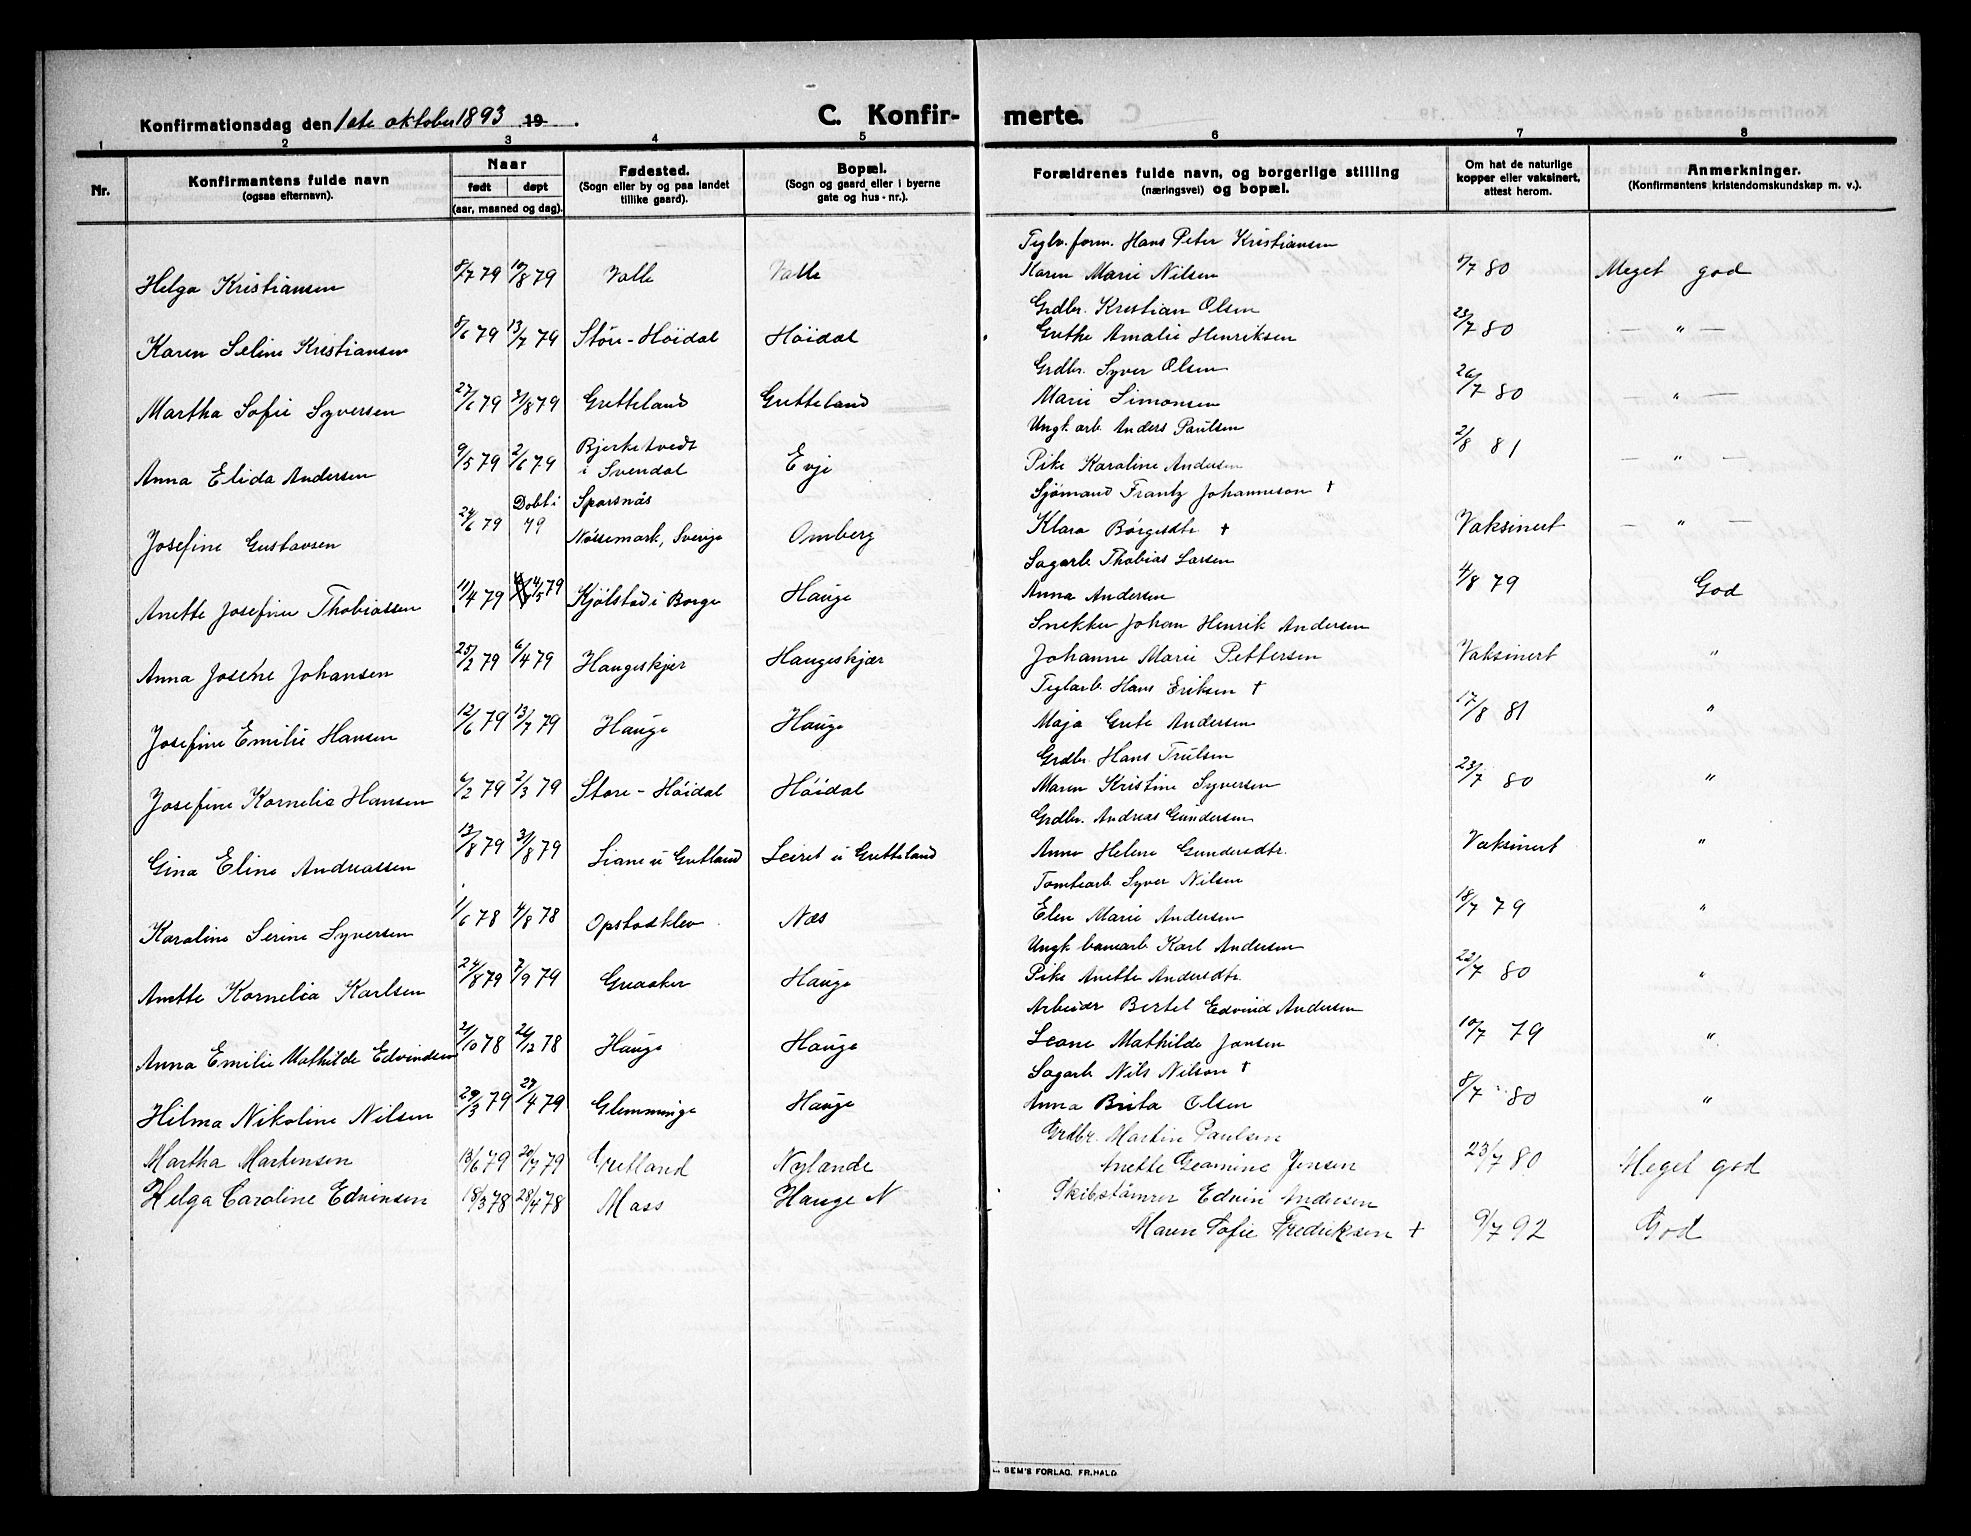 Konfirmationsdag den 1ste oktober 1893 19
C. Konfir- merte.
1 2 3 4 5 6 7 8
Nr. Konfirmantens fulde navn (ogsaa efternavn). Naar født døpt (aar, maaned og dag). Fødested. (Sogn eller by og paa landet tillike gaard). Bopæl. (Sogn og gaard eller i byerne gate og hus-nr.). Forældrenes fulde navn, og borgerlige stilling (næringsvei) og bopæl. Om hat de naturlige kopper eller vaksinert, attest herom. Anmerkninger. (Konfirmantens kristendomskundskap m. v.).
Teglv. form. Hans Peter Kristiansen
Helga Kristiansen 8/7 79 10/8 79 Valle Valle Karen Marie Nilsen 8/7 80 Meget god
Grdbr. Kristian Olsen
Karen Seline Kristiansen 8/6 79 13/7 79 Store-Höidal Höidal Grethe Amalie Henriksen 23/7 80 — " —
Grdbr. Syver Olsen
Martha Sofie Syversen 27/6 79 31/8 79 Gretteland Gretteland Marie Simonsen 26/7 80 — " —
Ungk. arb. Anders Paulsen
Anna Elida Andersen 9/5 79 2/6 79 Bjerketvedt i Svendal Evje Pike Karoline Andersen 2/8 81 — " —
Sjömand Frantz Johanneson †
Josefine Gustavsen 24/6 79 Dobt i 79 Sporsnäs Nössemark, Sverige Omberg Klara Börgesdtr † Vaksinert — " —
Sagarb. Thobias Larsen
Anette Josefine Thobiassen 11/4 79 4/5 79 Kjölstad i Borge Hauge Anna Andersen 4/8 79 God
Snekker Johan Henrik Andersen
Anna Josefine Johansen 25/2 79 6/4 79 Haugeskjær Haugeskjær Johanne Marie Pettersen Vaksinert "
Teglarb. Hans Eriksen †
Josefine Emilie Hansen 12/6 79 13/7 79 Hauge Hauge Maja Grete Andersen 17/8 81 "
Grdbr. Hans Trulsen
Josefine Kornelia Hansen 6/2 79 2/3 79 Store-Höidal Höidal Maren Kristine Syversen 23/7 80 "
Grdbr. Andreas Gundersen
Gina Eline Andreassen 13/8 79 31/8 79 Liane u Gretland Leiret u Gretteland Anne Helene Gundersdtr. Vaksinert "
Tomtearb. Syver Nilsen
Karoline Serine Syversen 1/6 78 4/8 78 Opstadklev Næs Elen Marie Andersen 18/7 79 "
Ungk. banearb. Karl Andersen
Anette Kornelia Karlsen 24/8 79 7/9 79 Greaaker Hauge Pike Anette Andersdtr. 22/7 80 "
Arbeider Bertel Edvind Andersen
Anna Emilie Mathilde Edvindsen 21/10 78 26/12 78 Hauge Hauge Leone Mathilde Jansen 10/7 79 "
Sagarb. Nils Nilson †
Hilma Nikoline Nilsen 29/3 79 27/4 79 Glemminge Hauge Anna Brita Olsen 8/7 80 "
Grdbr. Martin Paulsen
Martha Martensen 13/6 79 20/7 79 Gretland Nylande Anette Geamine Jensen 23/7 80 Meget god
Helga Caroline Edvinsen 18/3 78 28/4 78 Moss Hauge N Skibstömrer Edvin Andersen
Maren Sofie Fredriksen † 9/7 92 God
SEM'S FORLAG. FR.HALD.